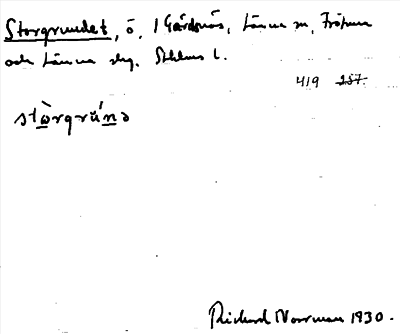 Storgrundet, ö, / Gärdsnäs, Länna sn, Frötuna
och Länna skg. Sthlms l.
419 287.
stò̱rgrún̠ə
Richard Norrman 1930.